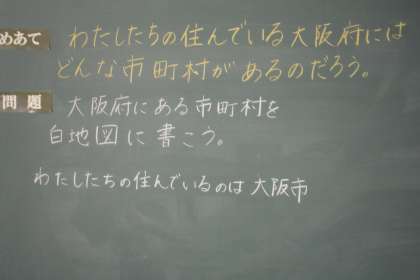 めあて わたしたちの住んでいる大阪府には
どんな市町村があるのだろう。
問題 大阪府にある市町村を
白地図に書こう。
わたしたちの住んでいるのは大阪市